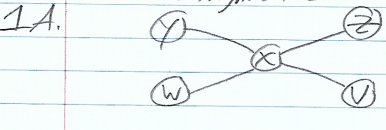 1A.
Y Z
X
W V